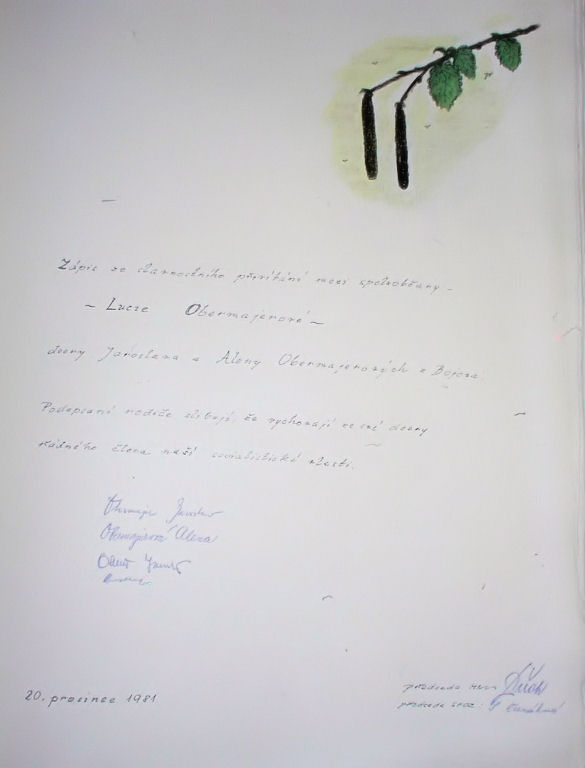 Zápis ze slavnostního přivítání mezi spoluobčany -
~ Lucie Obermajerové ~
dcery Jaroslava a Aleny Obermajerových z
Podepsaní rodiče slibují, že vychovají ze své dcery
řádného člena naší socialistické vlasti.
Obermajer Jaroslav
Obermajerová Alena
20. prosinec 1981
předseda
předseda SPOZ: